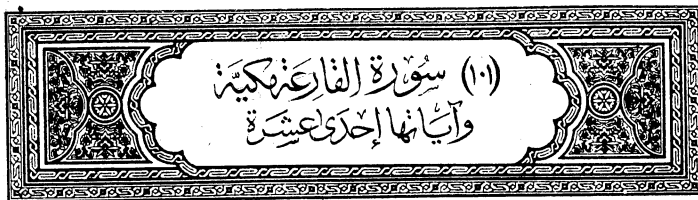 (١٠١) سُورَة القارعَة مكيَّة
وَآيَاتهَا إحدَى عشرَة